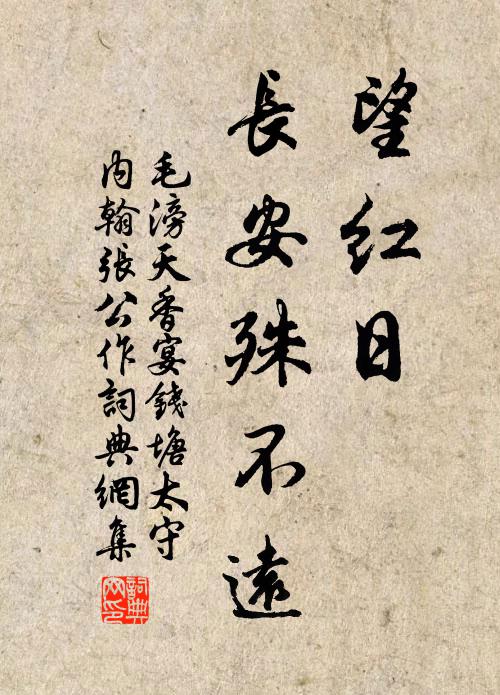 望紅日
長安殊不遠
毛滂天香宴錢塘太守
內翰張公作詞典網集
詞典網印